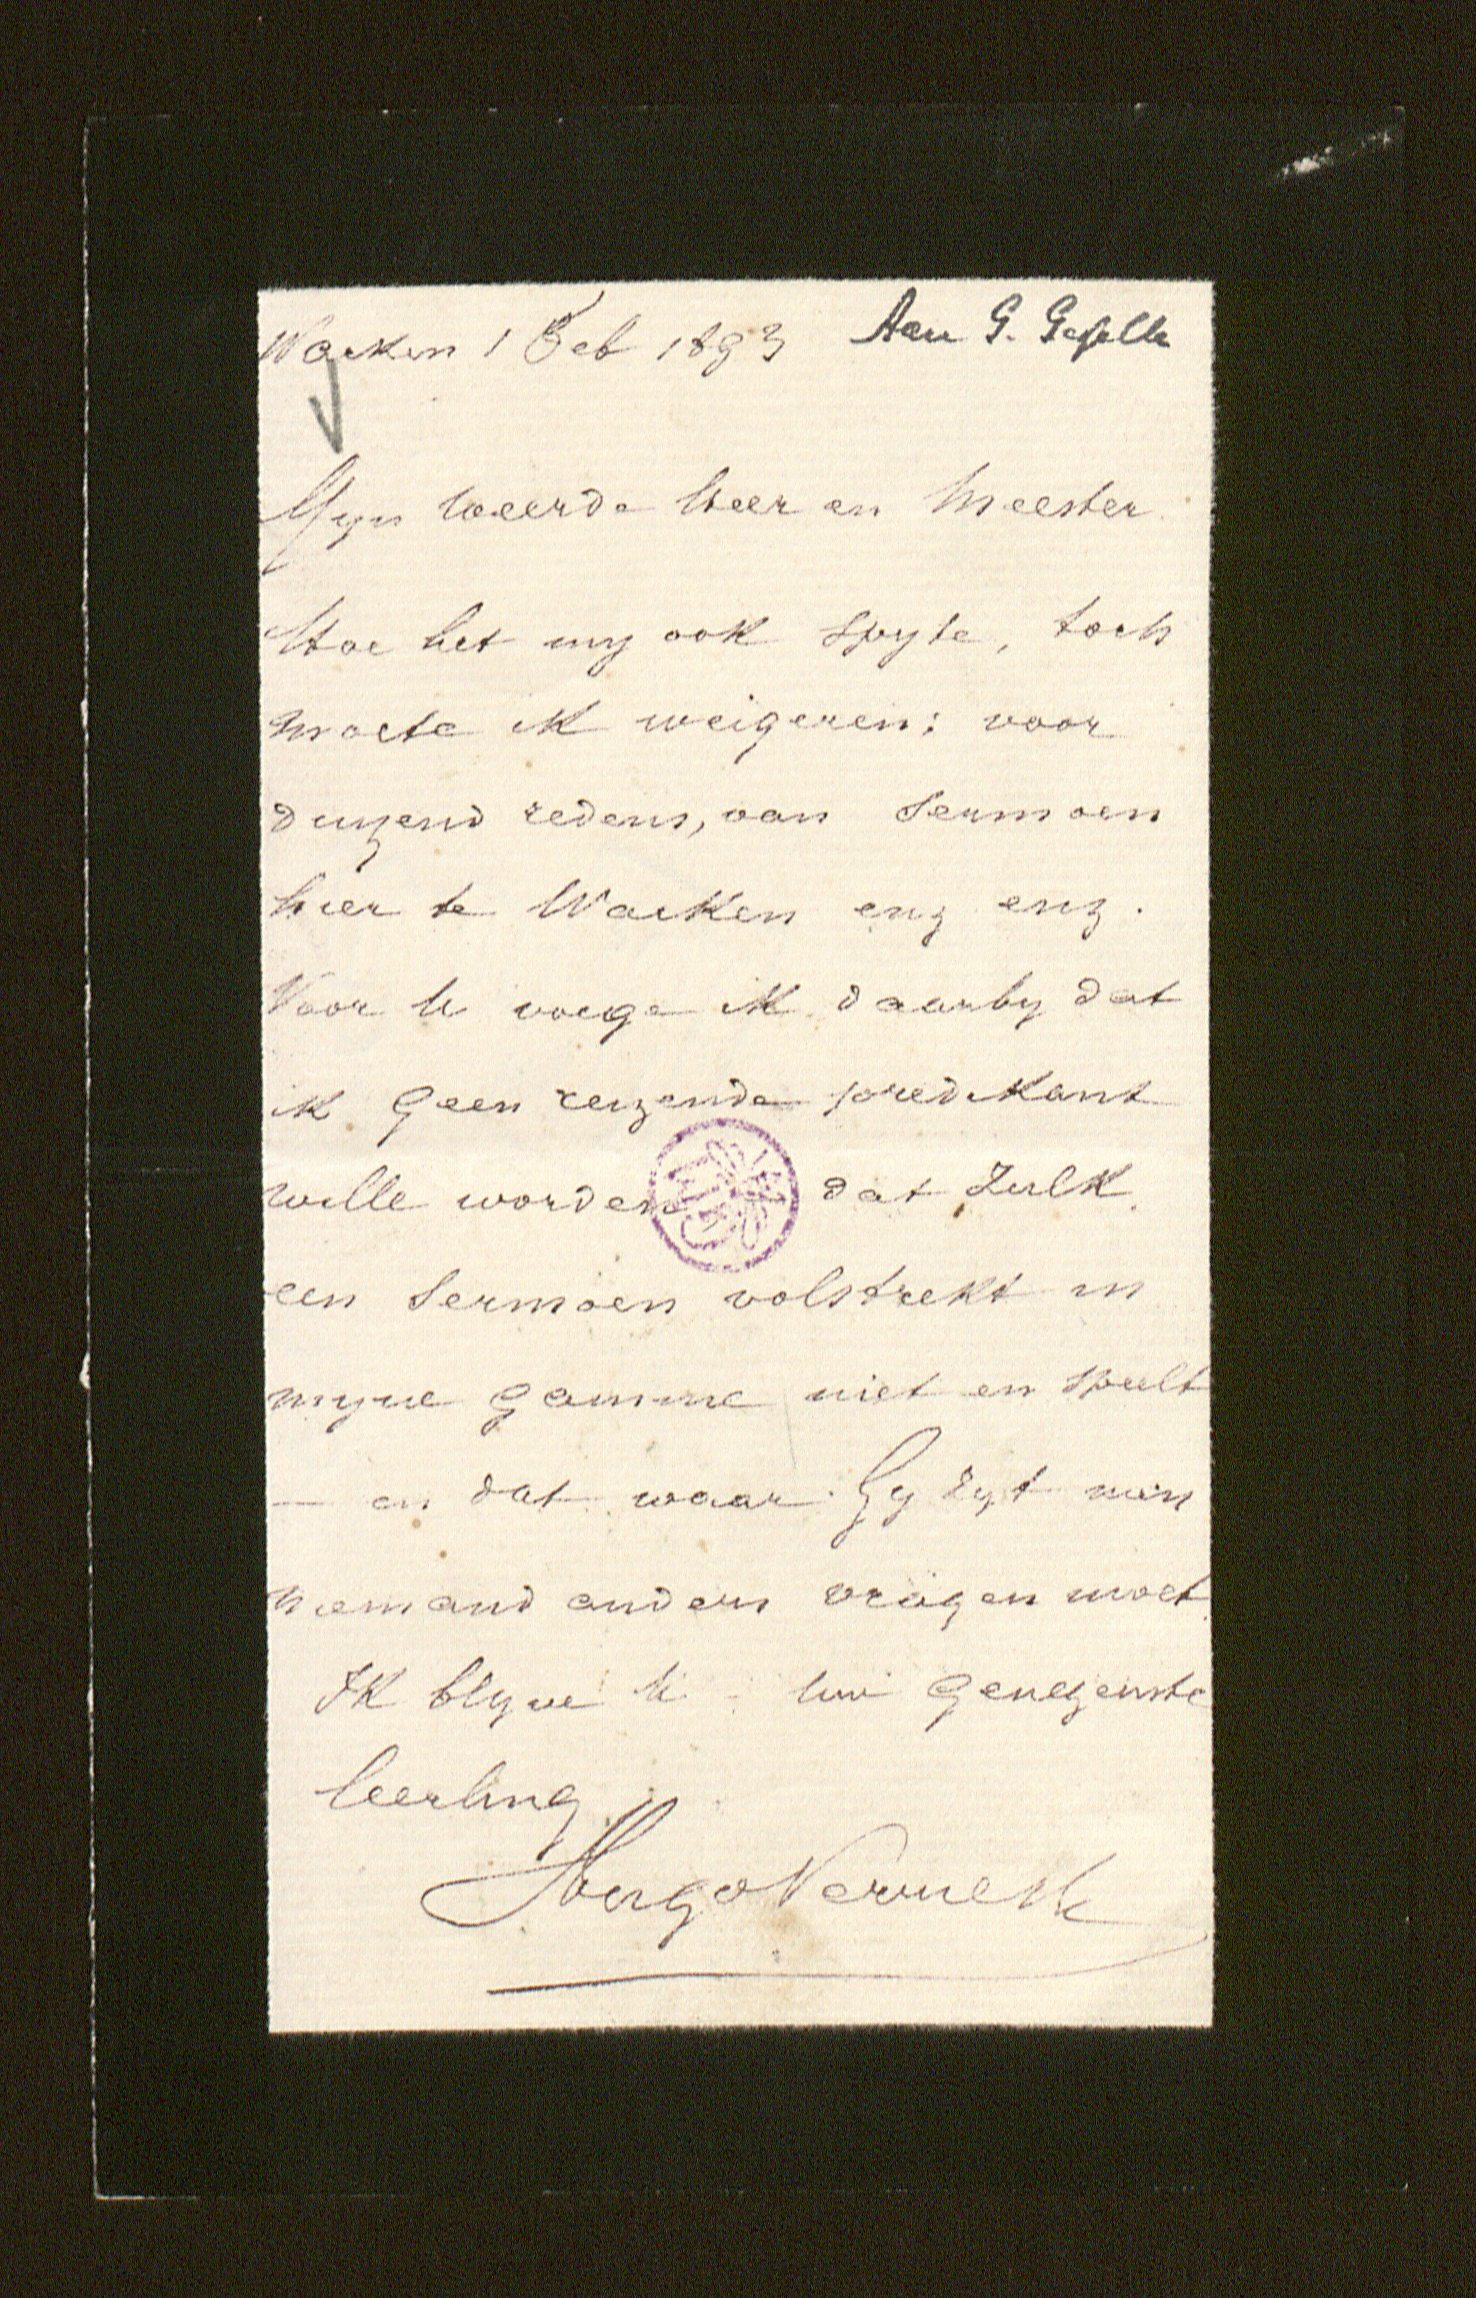 Wacken 1 Feb 1893 Aan G. Gezelle
Myn weerde Heer en Meester
Hoe het my ook spyte, toch
moete ik weigeren: voor
duyzend redens, van Sermoen
hier te Wacken enz enz.
Voor U voege ik daarby dat
ik geen reizende predikant
wille worden dat zulk
een Sermoen volstrekt in
myne gamme niet en speelt
— en dat waar Gy zyt men
niemand anders vragen moet
Ik blyve U uw genegenste
leerling
Hugo Verriest